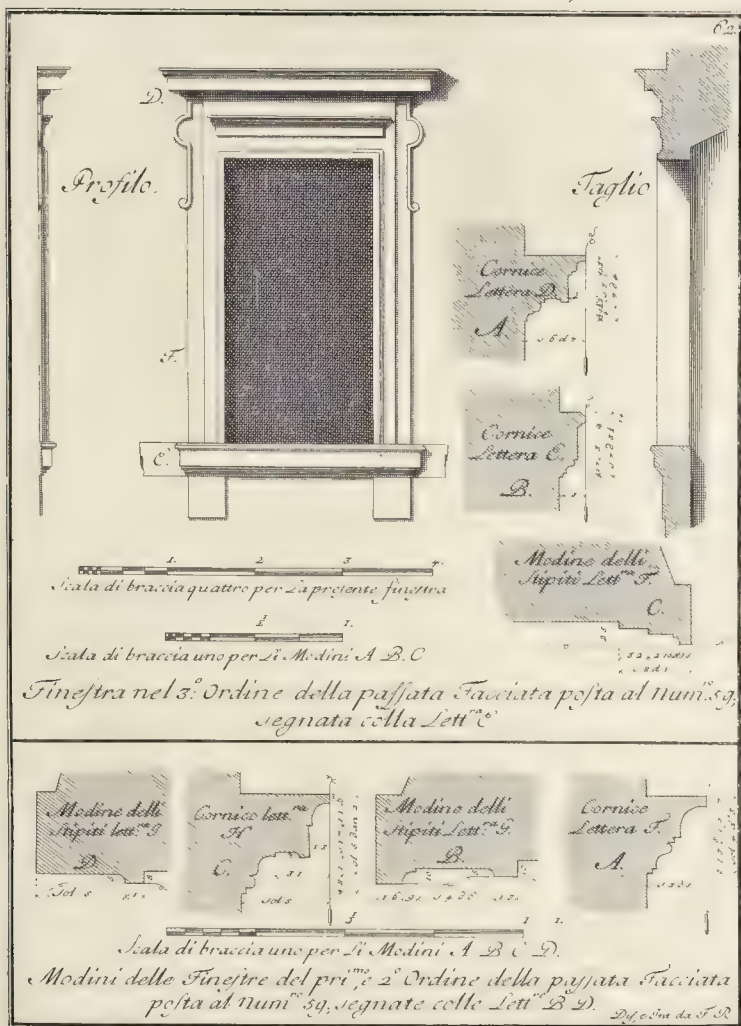 62.
D.
Profilo.
Taglio
Cornice
Lettera D.
A
s 6 d 1
F.
Cornice
Lettera E.
B.
E.
1. 2 3 4.
Scala di braccia quattro per La preſente fineſtra
Modine delli
Stipiti Lett.ra F.
C.
½ 1.
Scala di braccia uno per Li Modini A B. C
Fineſtra nel 3.º Ordine della paſſata Facciata poſta al Num.ro 59,
segnata colla Lett.ra
Modine delli
Stipiti lett.ra
D.
Cornice lett.ra
H
C.
Modine delli
Stipiti Lett.ra G.
B.
Cornice
Lettera F.
A.
Sol 5
½ 1.
Scala di braccia uno per Li Modini A B C D.
Modini delle Fineſtre del pri.mo, e 2º Ordine della paſſata Facciata
poſta al Num.ro 59, segnate colle Lett.re B D.
da F R